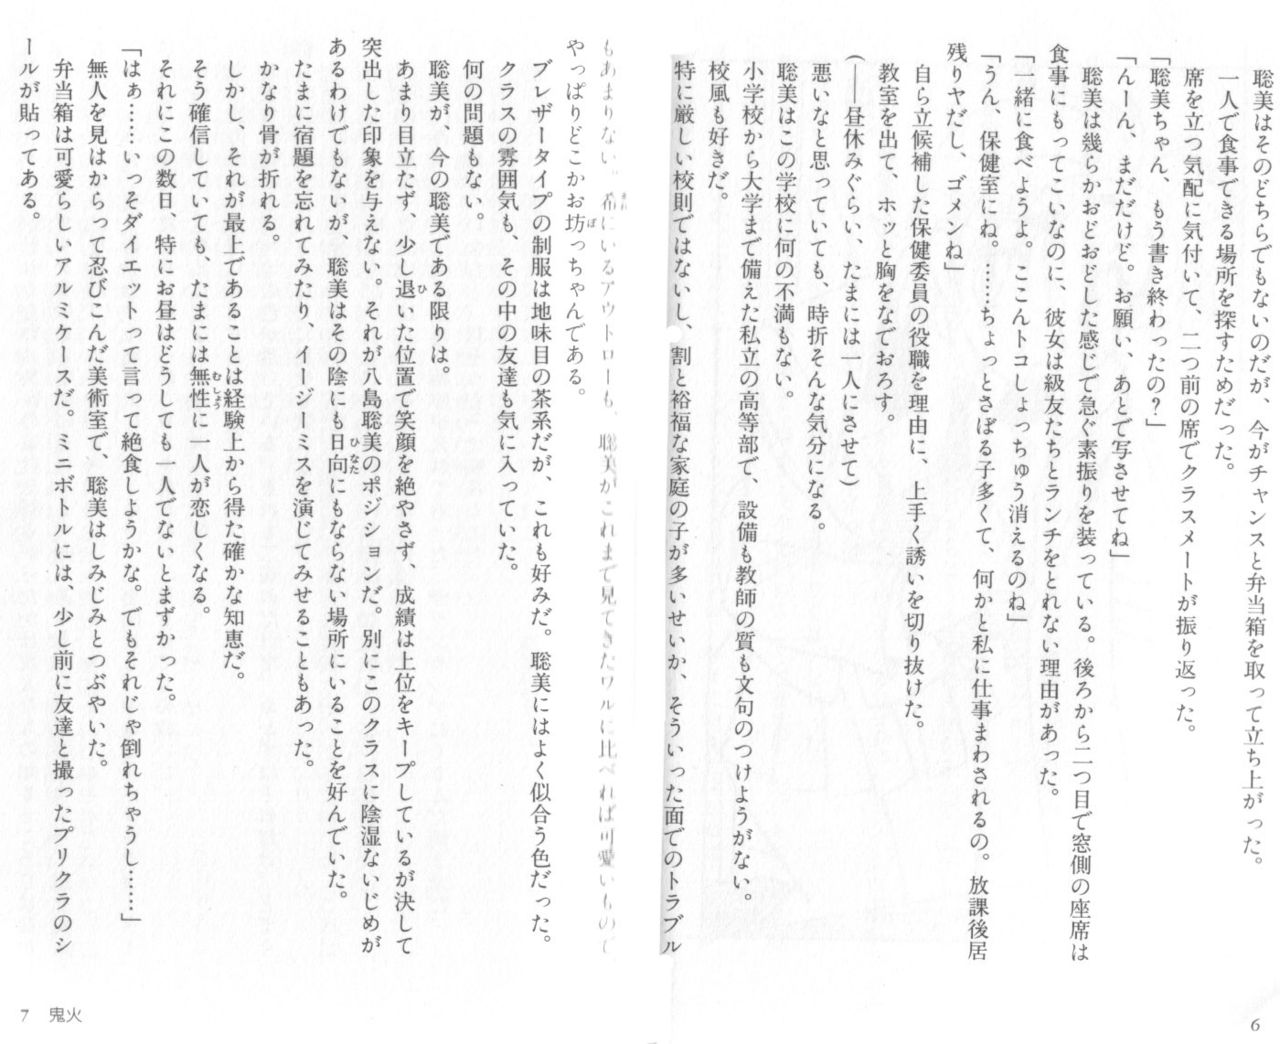 聡美はそのどちらでもないのだが、今がチャンスと弁当箱を取って立ち上がった。
一人で食事できる場所を探すためだった。
席を立つ気配に気付いて、二つ前の席でクラスメートが振り返った。
「聡美ちゃん、もう書き終わったの?」
「んーん、まだだけど。お願い、あとで写させてね」
聡美は幾らかおどおどした感じで急ぐ素振りを装っている。後ろから二つ目で窓側の座席は
食事にもってこいなのに、彼女は級友たちとランチをとれない理由があった。
「一緒に食べようよ。ここんトコしょっちゅう消えるのね」
「うん、保健室にね。……ちょっとさぼる子多くて、何かと私に仕事まわされるの。放課後居
残りヤだし、ゴメンね」
自ら立候補した保健委員の役職を理由に、上手く誘いを切り抜けた。
教室を出て、ホッと胸をなでおろす。
(――昼休みぐらい、たまには一人にさせて)
悪いなと思っていても、時折そんな気分になる。
聡美はこの学校に何の不満もない。
小学校から大学まで備えた私立の高等部で、設備も教師の質も文句のつけようがない。
校風も好きだ。
特に厳しい校則ではないし、割と裕福な家庭の子が多いせいか、そういった面でのトラブル
もあまりない。希にいるアウトローも、聡美がこれまで見てきたワルに比べれば可愛いもので
やっぱりどこかお坊っちゃんである。
ブレザータイプの制服は地味目の茶系だが、これも好みだ。聡美にはよく似合う色だった。
クラスの雰囲気も、その中の友達も気に入っていた。
何の問題もない。
聡美が、今の聡美である限りは。
あまり目立たず、少し退いた位置で笑顔を絶やさず、成績は上位をキープしているが決して
突出した印象を与えない。それが八島聡美のポジションだ。別にこのクラスに陰湿ないじめが
あるわけでもないが、聡美はその陰にも日向にもならない場所にいることを好んでいた。
たまに宿題を忘れてみたり、イージーミスを演じてみせることもあった。
かなり骨が折れる。
しかし、それが最上であることは経験上から得た確かな知恵だ。
そう確信していても、たまには無性に一人が恋しくなる。
それにこの数日、特にお昼はどうしても一人でないとまずかった。
「はぁ……いっそダイエットって言って絶食しようかな。でもそれじゃ倒れちゃうし……」
無人を見はからって忍びこんだ美術室で、聡美はしみじみとつぶやいた。
弁当箱は可愛らしいアルミケースだ。ミニボトルには、少し前に友達と撮ったプリクラのシ
ールが貼ってある。
6
7 鬼火